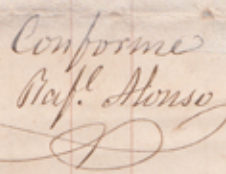 Conforme
Raf.l Alonso